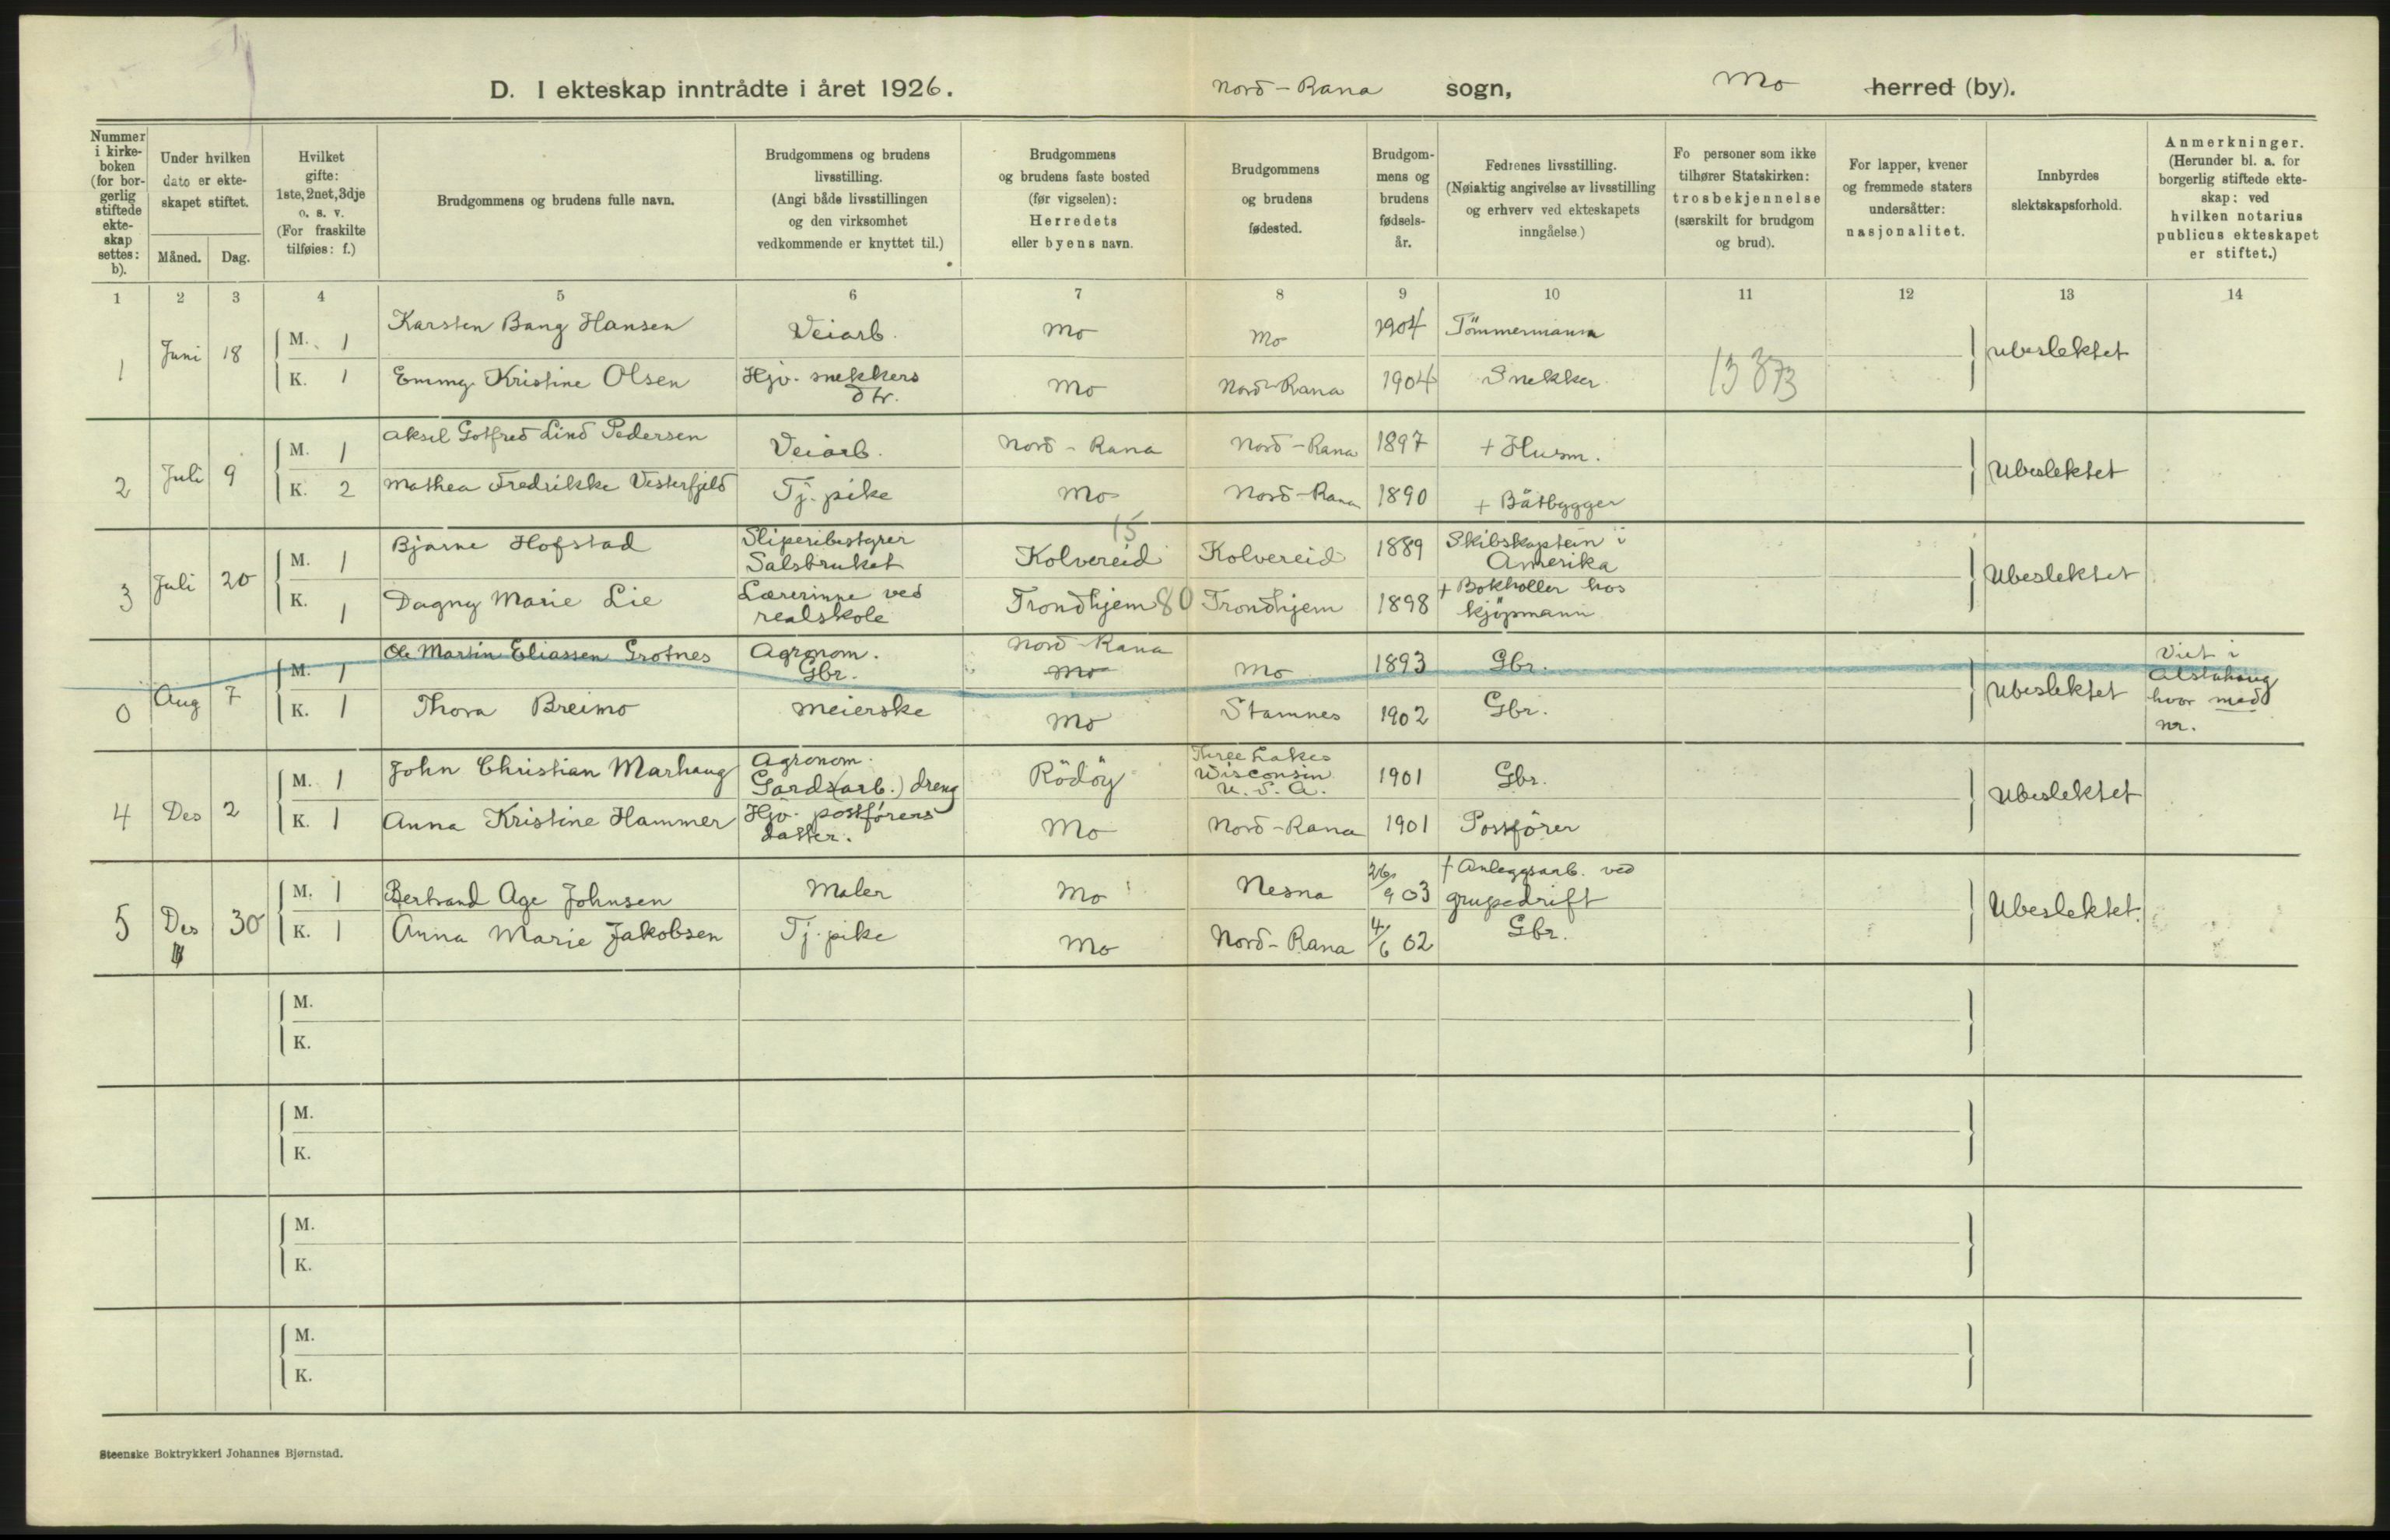 D. I ekteskap inntrådte i året 1926. Nord-Rana sogn, Mo herred (by).
Nummer i kirke-boken (for bor-gerlig stiftede ekte-skap settes: b).
Under hvilken dato er ekte-skapet stiftet.
Måned. Dag.
Hvilket gifte: 1ste, 2net, 3dje o. s. v. (For fraskilte tilføies: f.)
Brudgommens og brudens fulle navn.
Brudgommens og brudens livsstilling. (Angi både livsstillingen og den virksomhet vedkommende er knyttet til.)
Brudgommens og brudens faste bosted (før vigselen): Herredets eller byens navn.
Brudgommens og brudens fødested.
Brudgom-mens og brudens fødsels-år.
Fedrenes livsstilling. (Nøiaktig angivelse av livsstilling og erhverv ved ekteskapets inngåelse.)
Fo personer som ikke tilhører Statskirken: trosbekjennelse (særskilt for brudgom og brud).
For lapper, kvener og fremmede staters undersåtter: nasjonalitet.
Innbyrdes slektskapsforhold.
Anmerkninger. (Herunder bl. a. for borgerlig stiftede ekte-skap: ved hvilken notarius publicus ekteskapet er stiftet.)
1 2 3 4 5 6 7 8 9 10 11 12 13 14
1 Juni 18 M. 1 Karsten Bang Hansen Veiarb. Mo Mo 1904 Tömmermann Ubeslektet
K. 1 Emmy Kristine Olsen Hjv. snekkers dtr. Mo Nord-Rana 1904 Snekker 13873
2 Juli 9 M. 1 Aksel Gotfred Lind Pedersen Veiarb. Nord-Rana Nord-Rana 1897 + Husm. Ubeslektet
K. 2 Mathea Fredrikke Vesterfjeld Tj. pike Mo Nord-Rana 1890 + Båtbygger
3 Juli 20 M. 1 Bjarne Hofstad Sliperibestyrer Salsbruket 15 Kolvereid Kolvereid 1889 Skibskaptein i Amerika Ubeslektet
K. 1 Dagny Marie Lie Lærerinne ved realskole Trondhjem 80 Trondhjem 1898 + Bokholler hos kjöpmann
0 Aug 7 M. 1 Ole Martin Eliassen Grotnes Agronom. Gbr. Nord-Rana Mo Mo 1893 Gbr. Ubeslektet Viet i Alstahaug hvor med nr.
K. 1 Thora Breimo Meierske Mo Stamnes 1902 Gbr.
4 Des 2 M. 1 John Christian Marhaug Agronom. Gards(arb.) dreng Rödöy Three Lakes Wisconsin U. S. A. 1901 Gbr. Ubeslektet
K. 1 Anna Kristine Hammer Hjv. postförers datter. Mo Nord-Rana 1901 Postförer
5 Des 30 M. 1 Bertrand Age Johnsen Maler Mo Nesna 26/9 03 + Anleggsarb. ved grupedrift Ubeslektet.
K. 1 Anna Marie Jakobsen Tj. pike Mo Nord-Rana 4/6 02 Gbr.
M.
K.
M.
K.
M.
K.
M.
K.
Steenske Boktrykkeri Johannes Bjørnstad.